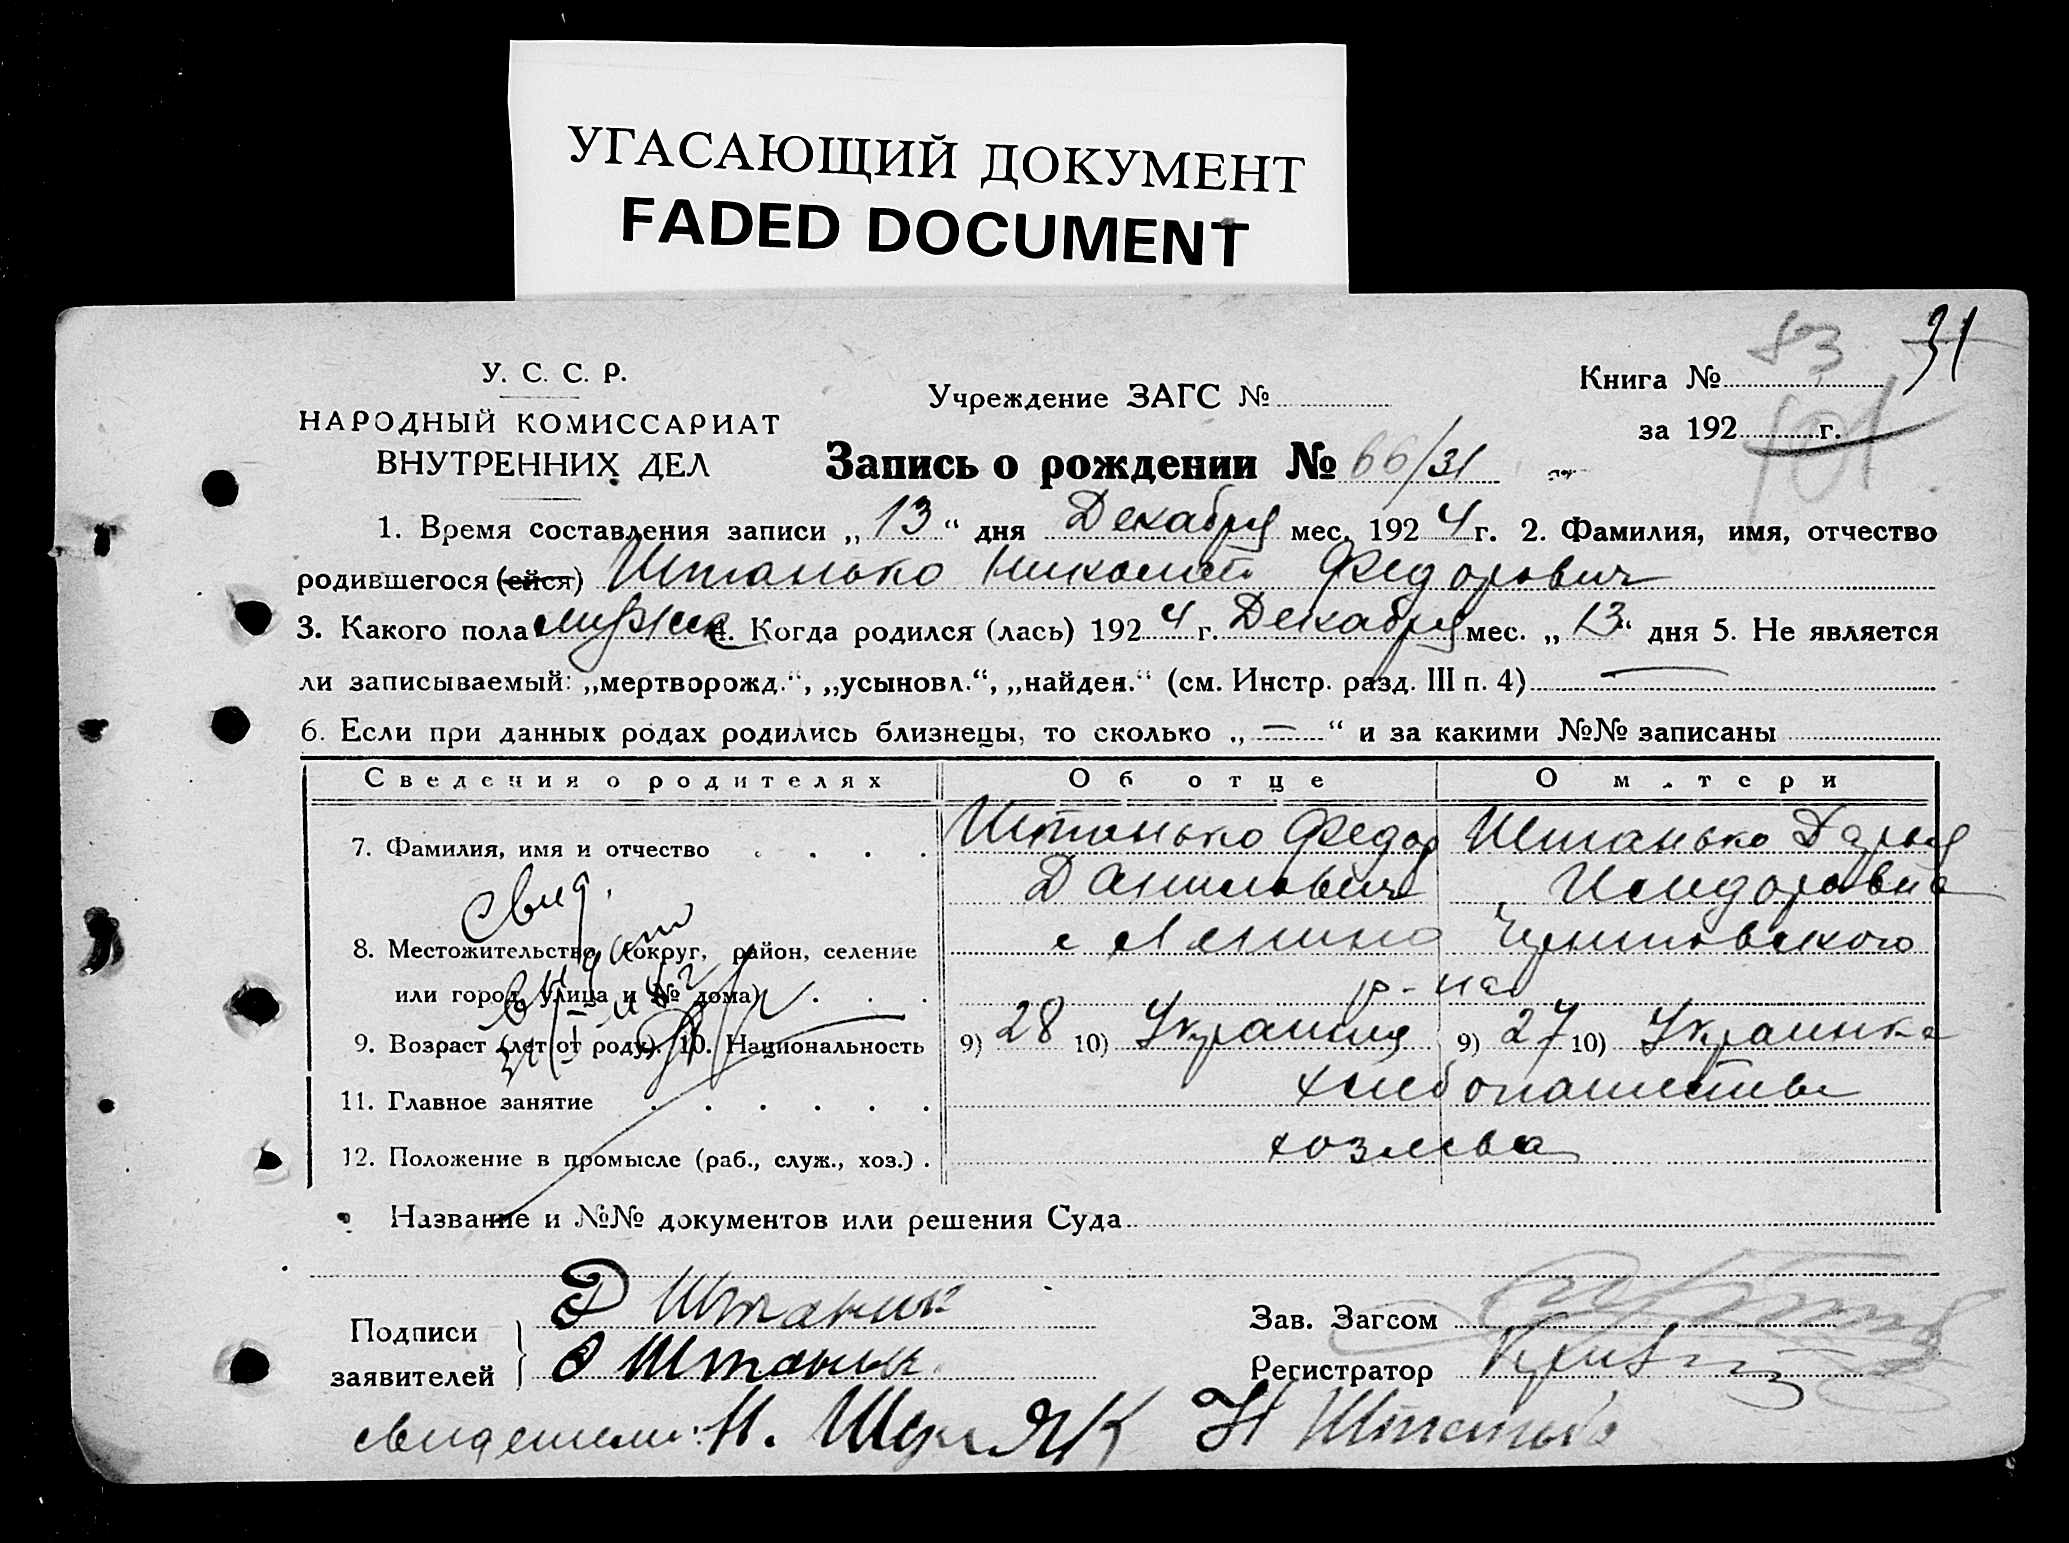 УГАСАЮЩИЙ ДОКУМЕНТ
FADED DOCUMENT
83 31
У. С. С. Р.
НАРОДНЫЙ КОМИССАРИАТ
ВНУТРЕННИХ ДЕЛ
Учреждение ЗАГС №
Книга №
за 192 г.
101
Запись о рождении № 66/31
1. Время составления записи „13“ дня Декабря мес. 1924 г. 2. Фамилия, имя, отчество
родившегося (ейся) Штанько Николай Федорович
3. Какого пола мужск 4. Когда родился (лась) 1924 г. Декабря мес. „13“ дня 5. Не является
ли записываемый: „мертворожд.“, „усыновл.“, „найден.“ (см. Инстр. разд. III п. 4) —
6. Если при данных родах родились близнецы, то сколько „—“ и за какими №№ записаны
Сведения о родителях Об отце О матери
7. Фамилия, имя и отчество . . . . Штанько Федор Штанько Дарья
Данилович Исидоровна
свид.
8. Местожительство (округ, район, селение
или город, улица и № дома) . . .
р-на
9. Возраст (лет от роду). 10. Национальность 9) 28 10) Украинец 9) 27 10) Украинка
11. Главное занятие . . . . . . хлебопашество
12. Положение в промысле (раб., служ., хоз.) . хозяева
Название и №№ документов или решения Суда
Подписи
заявителей
Зав. Загсом
Регистратор
свидетели: Н.